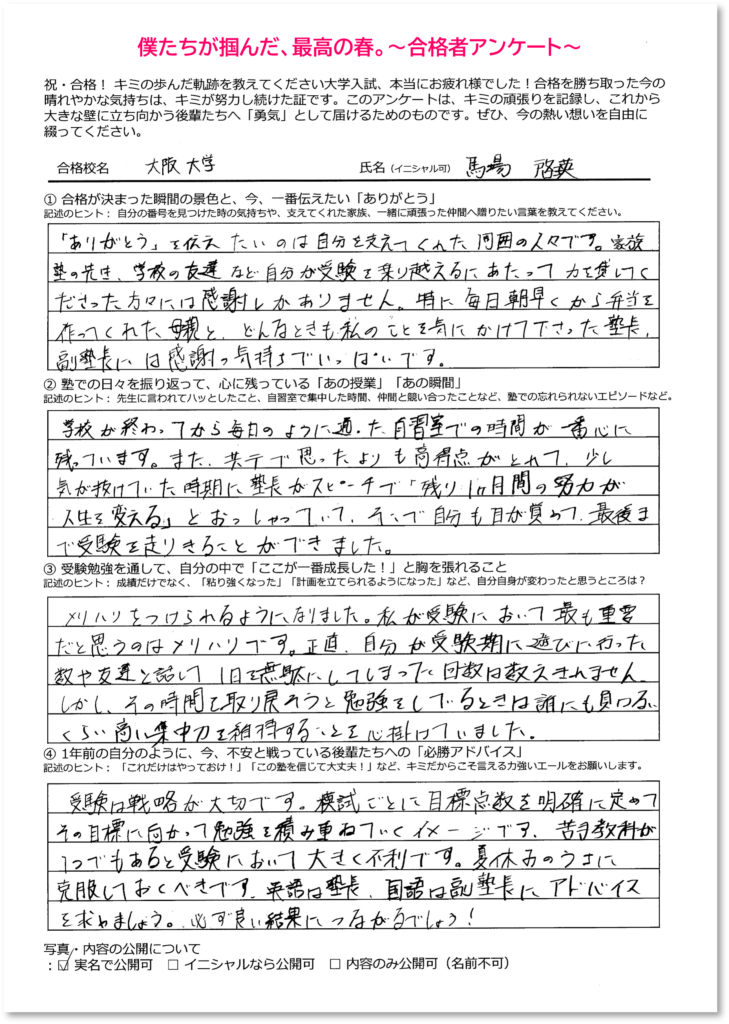 僕たちが掴んだ、最高の春。～合格者アンケート～
祝・合格！ キミの歩んだ軌跡を教えてください大学入試、本当にお疲れ様でした！合格を勝ち取った今の
晴れやかな気持ちは、キミが努力し続けた証です。このアンケートは、キミの頑張りを記録し、これから
大きな壁に立ち向かう後輩たちへ「勇気」として届けるためのものです。ぜひ、今の熱い想いを自由に
綴ってください。
合格校名 大阪大学 氏名（イニシャル可） 馬場 啓英
① 合格が決まった瞬間の景色と、今、一番伝えたい「ありがとう」
記述のヒント： 自分の番号を見つけた時の気持ちや、支えてくれた家族、一緒に頑張った仲間へ贈りたい言葉を教えてください。
「ありがとう」を伝えたいのは自分を支えてくれた周囲の人々です。家族
塾の先生、学校の友達など自分が受験を乗り越えるにあたって力を貸してく
ださった方々には感謝しかありません。特に毎日朝早くから弁当を
作ってくれた母親と、どんなときも私のことを気にかけて下さった塾長、
副塾長には感謝の気持ちでいっぱいです。
② 塾での日々を振り返って、心に残っている「あの授業」「あの瞬間」
記述のヒント： 先生に言われてハッとしたこと、自習室で集中した時間、仲間と競い合ったことなど、塾での忘れられないエピソードなど。
学校が終わってから毎日のように通った自習室での時間が一番心に
残っています。また、共テで思ったよりも高得点がとれて、少し
気が抜けていた時期に塾長がスピーチで「残り1ヶ月間の努力が
人生を変える」とおっしゃっていて、そこで自分も目が覚めて、最後ま
で受験を走りきることができました。
③ 受験勉強を通して、自分の中で「ここが一番成長した！」と胸を張れること
記述のヒント： 成績だけでなく、「粘り強くなった」「計画を立てられるようになった」など、自分自身が変わったと思うところは？
メリハリをつけられるようになりました。私が受験において最も重要
だと思うのはメリハリです。正直、自分が受験期に遊びに行った
数や友達と話して1日を無駄にしてしまった回数は数えきれません。
しかし、その時間を取り戻そうと勉強をしているときは誰にも負けない
くらい高い集中力を維持することを心掛けていました。
④ 1年前の自分のように、今、不安と戦っている後輩たちへの「必勝アドバイス」
記述のヒント： 「これだけはやっておけ！」「この塾を信じて大丈夫！」など、キミだからこそ言える力強いエールをお願いします。
受験は戦略が大切です。模試ごとに目標点数を明確に定めて
その目標に向かって勉強を積み重ねていくイメージです、苦手教科が
1つでもあると受験において大きく不利です。夏休みのうちに
克服しておくべきです。英語は塾長、国語は副塾長にアドバイス
を求めましょう。必ず良い結果につながるでしょう！
写真・内容の公開について
：☑ 実名で公開可 □ イニシャルなら公開可 □ 内容のみ公開可（名前不可）